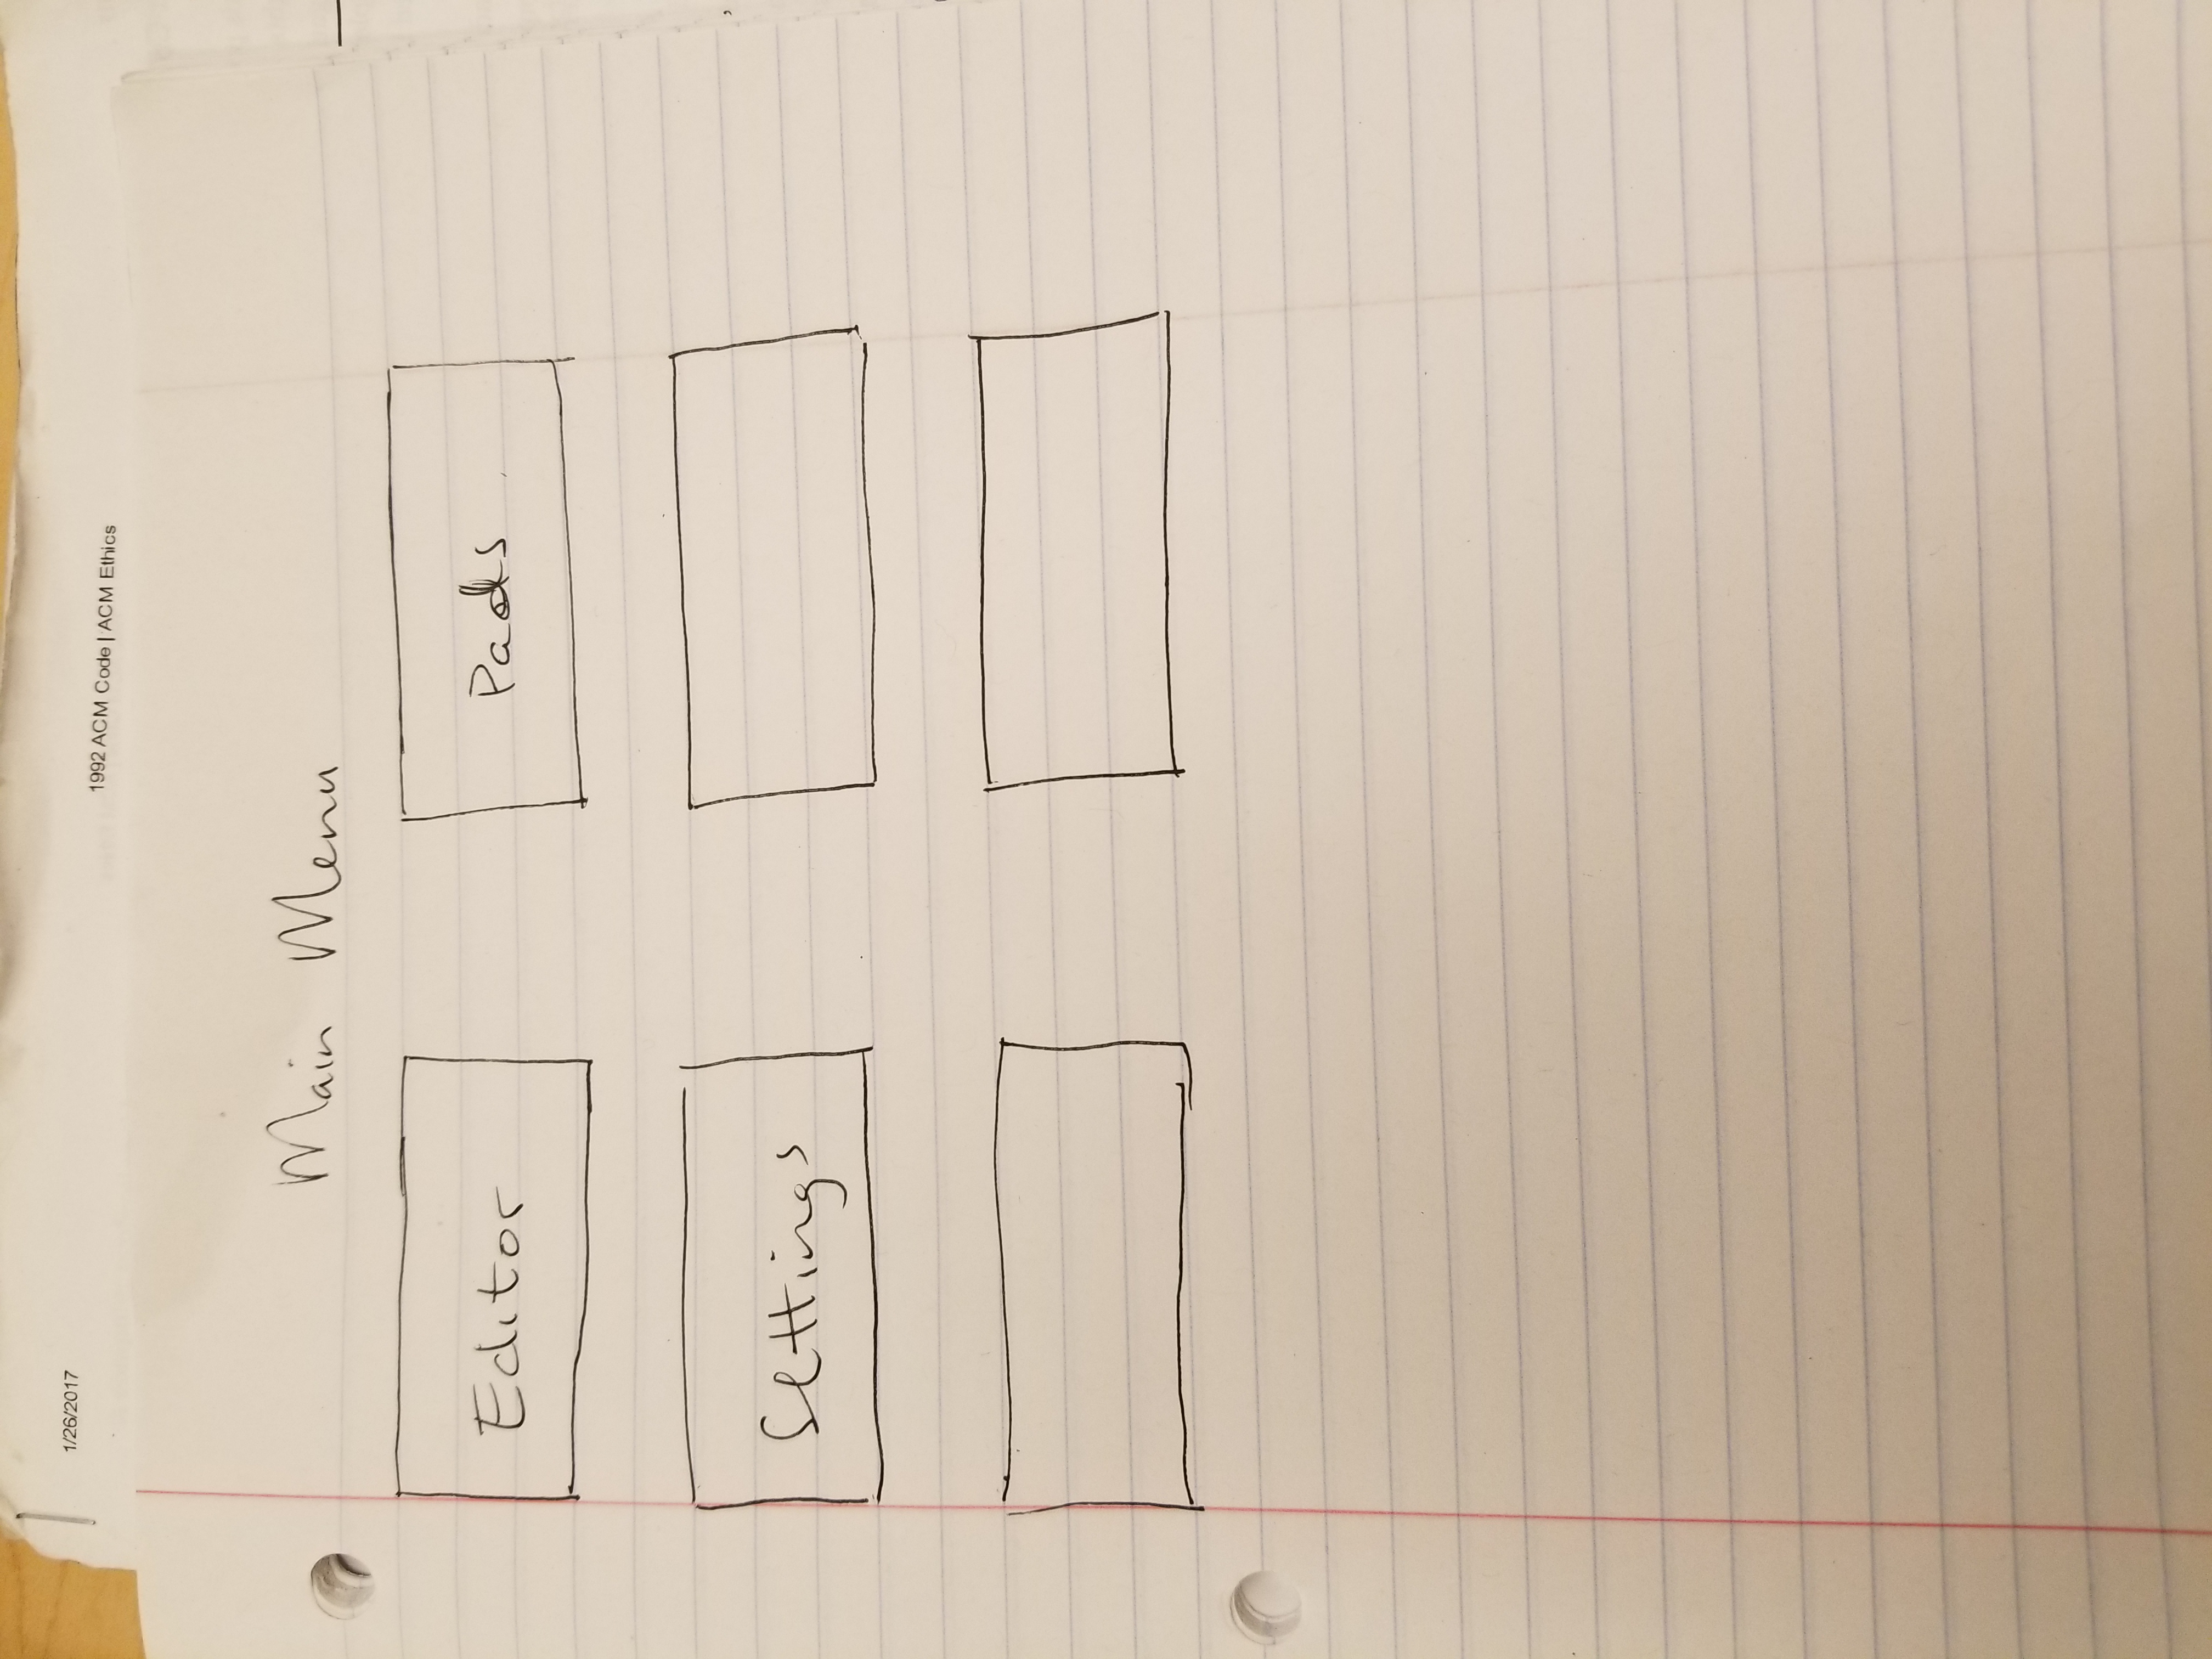 1/26/2017
1992 ACM Code | ACM Ethics
Main Menu
Editor
Pads
Settings